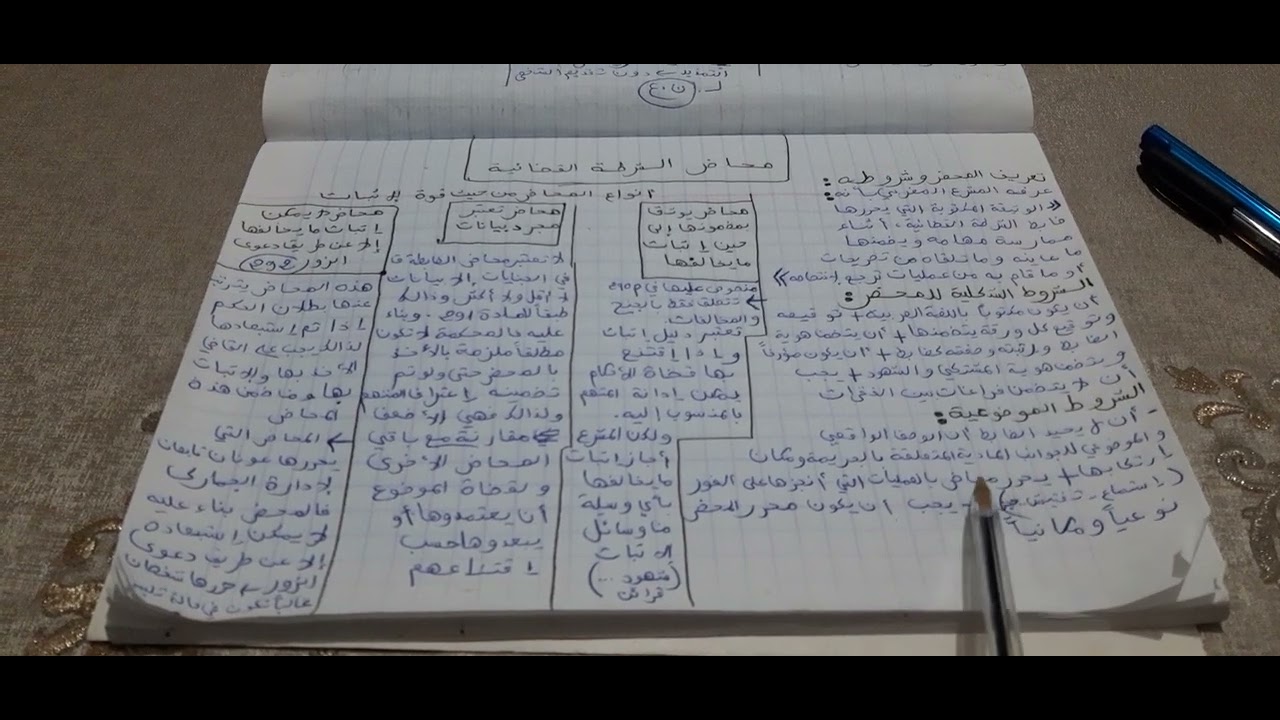 التمديد دون تقديم الشخص
لـ. ن.ع
محاضر الشرطة القضائية
تعريف المحضر وشروطه:
عرفه المشرع المغربي بأنه
«الوثيقة المكتوبة التي يحررها
ضابط الشرطة القضائية، أثناء
ممارسة مهامه ويضمنها
ما عاينه وما تلقاه من تصريحات
أو ما قام به من عمليات ترجع لاختصاصه»
الشروط الشكلية للمحضر:
أن يكون مكتوباً باللغة العربية + توقيعه
وتوقيع كل ورقة يتضمنها + أن يتضمن هوية
الضابط ورتبته وصفته كضابط + أن يكون مؤرخاً
ويتضمن هوية المشتكي والشهود + يجب
أن لا يتضمن فراغات بين الفقرات
الشروط الموضوعية:
- أن لا يحيد الضابط أن الوصف الواقعي
والموضوعي للجوانب المادية المتعلقة بالجريمة ومكان
إرتكابها + يحرر محاضر بالعمليات التي أنجزها على الفور
(إستماع - تفتيش يجب أن يكون محرر المحضر
نوعياً ومكانياً
أنواع المحاضر من حيث قوة الإثبات
محاضر يوثق
بمضمونها إلى
حين إثبات
ما يخالفها
منصوص عليها في م 290
← تتعلق فقط بالجنح
والمخالفات.
تعتبر دليل إثبات
وإذا إقتنع
بها قضاة الأحكام
يمكن إدانة المتهم
بالمنسوب إليه.
ولكن المشرع
أجاز إثبات
ما يخالفها
بأي وسيلة
من وسائل
الإثبات
(شهود ...
قرائن)
محاضر تعتبر
مجرد بيانات
لا تعتبر محاضر الضابطة ق
في الجنايات إلا بيانات
لا أقل ولا أكثر وذلك
طبقاً للمادة 291. وبناء
عليه فالمحكمة لا تكون
مطلقاً ملزمة بالأخذ
بالمحضر حتى ولو تم
تضمينه إعتراف المتهم
ولذالك فهي الأضعف
مقارنة مع باقي
المحاضر الأخرى
ولقضاة الموضوع
أن يعتمدوها أو
يبعدوها حسب
إقتناعهم
محاضر لا يمكن
إثبات ما يخالفها
إلا عن طريق دعوى
الزور 292
هذه المحاضر يترتب
عنها بطلان الحكم
إذا تم إستبعادها
لذالك يجب على القاضي
الأخذ بها والإثبات
بها ومن ضمن هذه
المحاضر
← المحاضر التي
يحررها عونان تابعان
لإدارة الجمارك
فالمحضر بناء عليه
لا يمكن إستبعاده
إلا عن طريق دعوى
الزور حررها شخصان
غالباً تكون في حالة تلبس